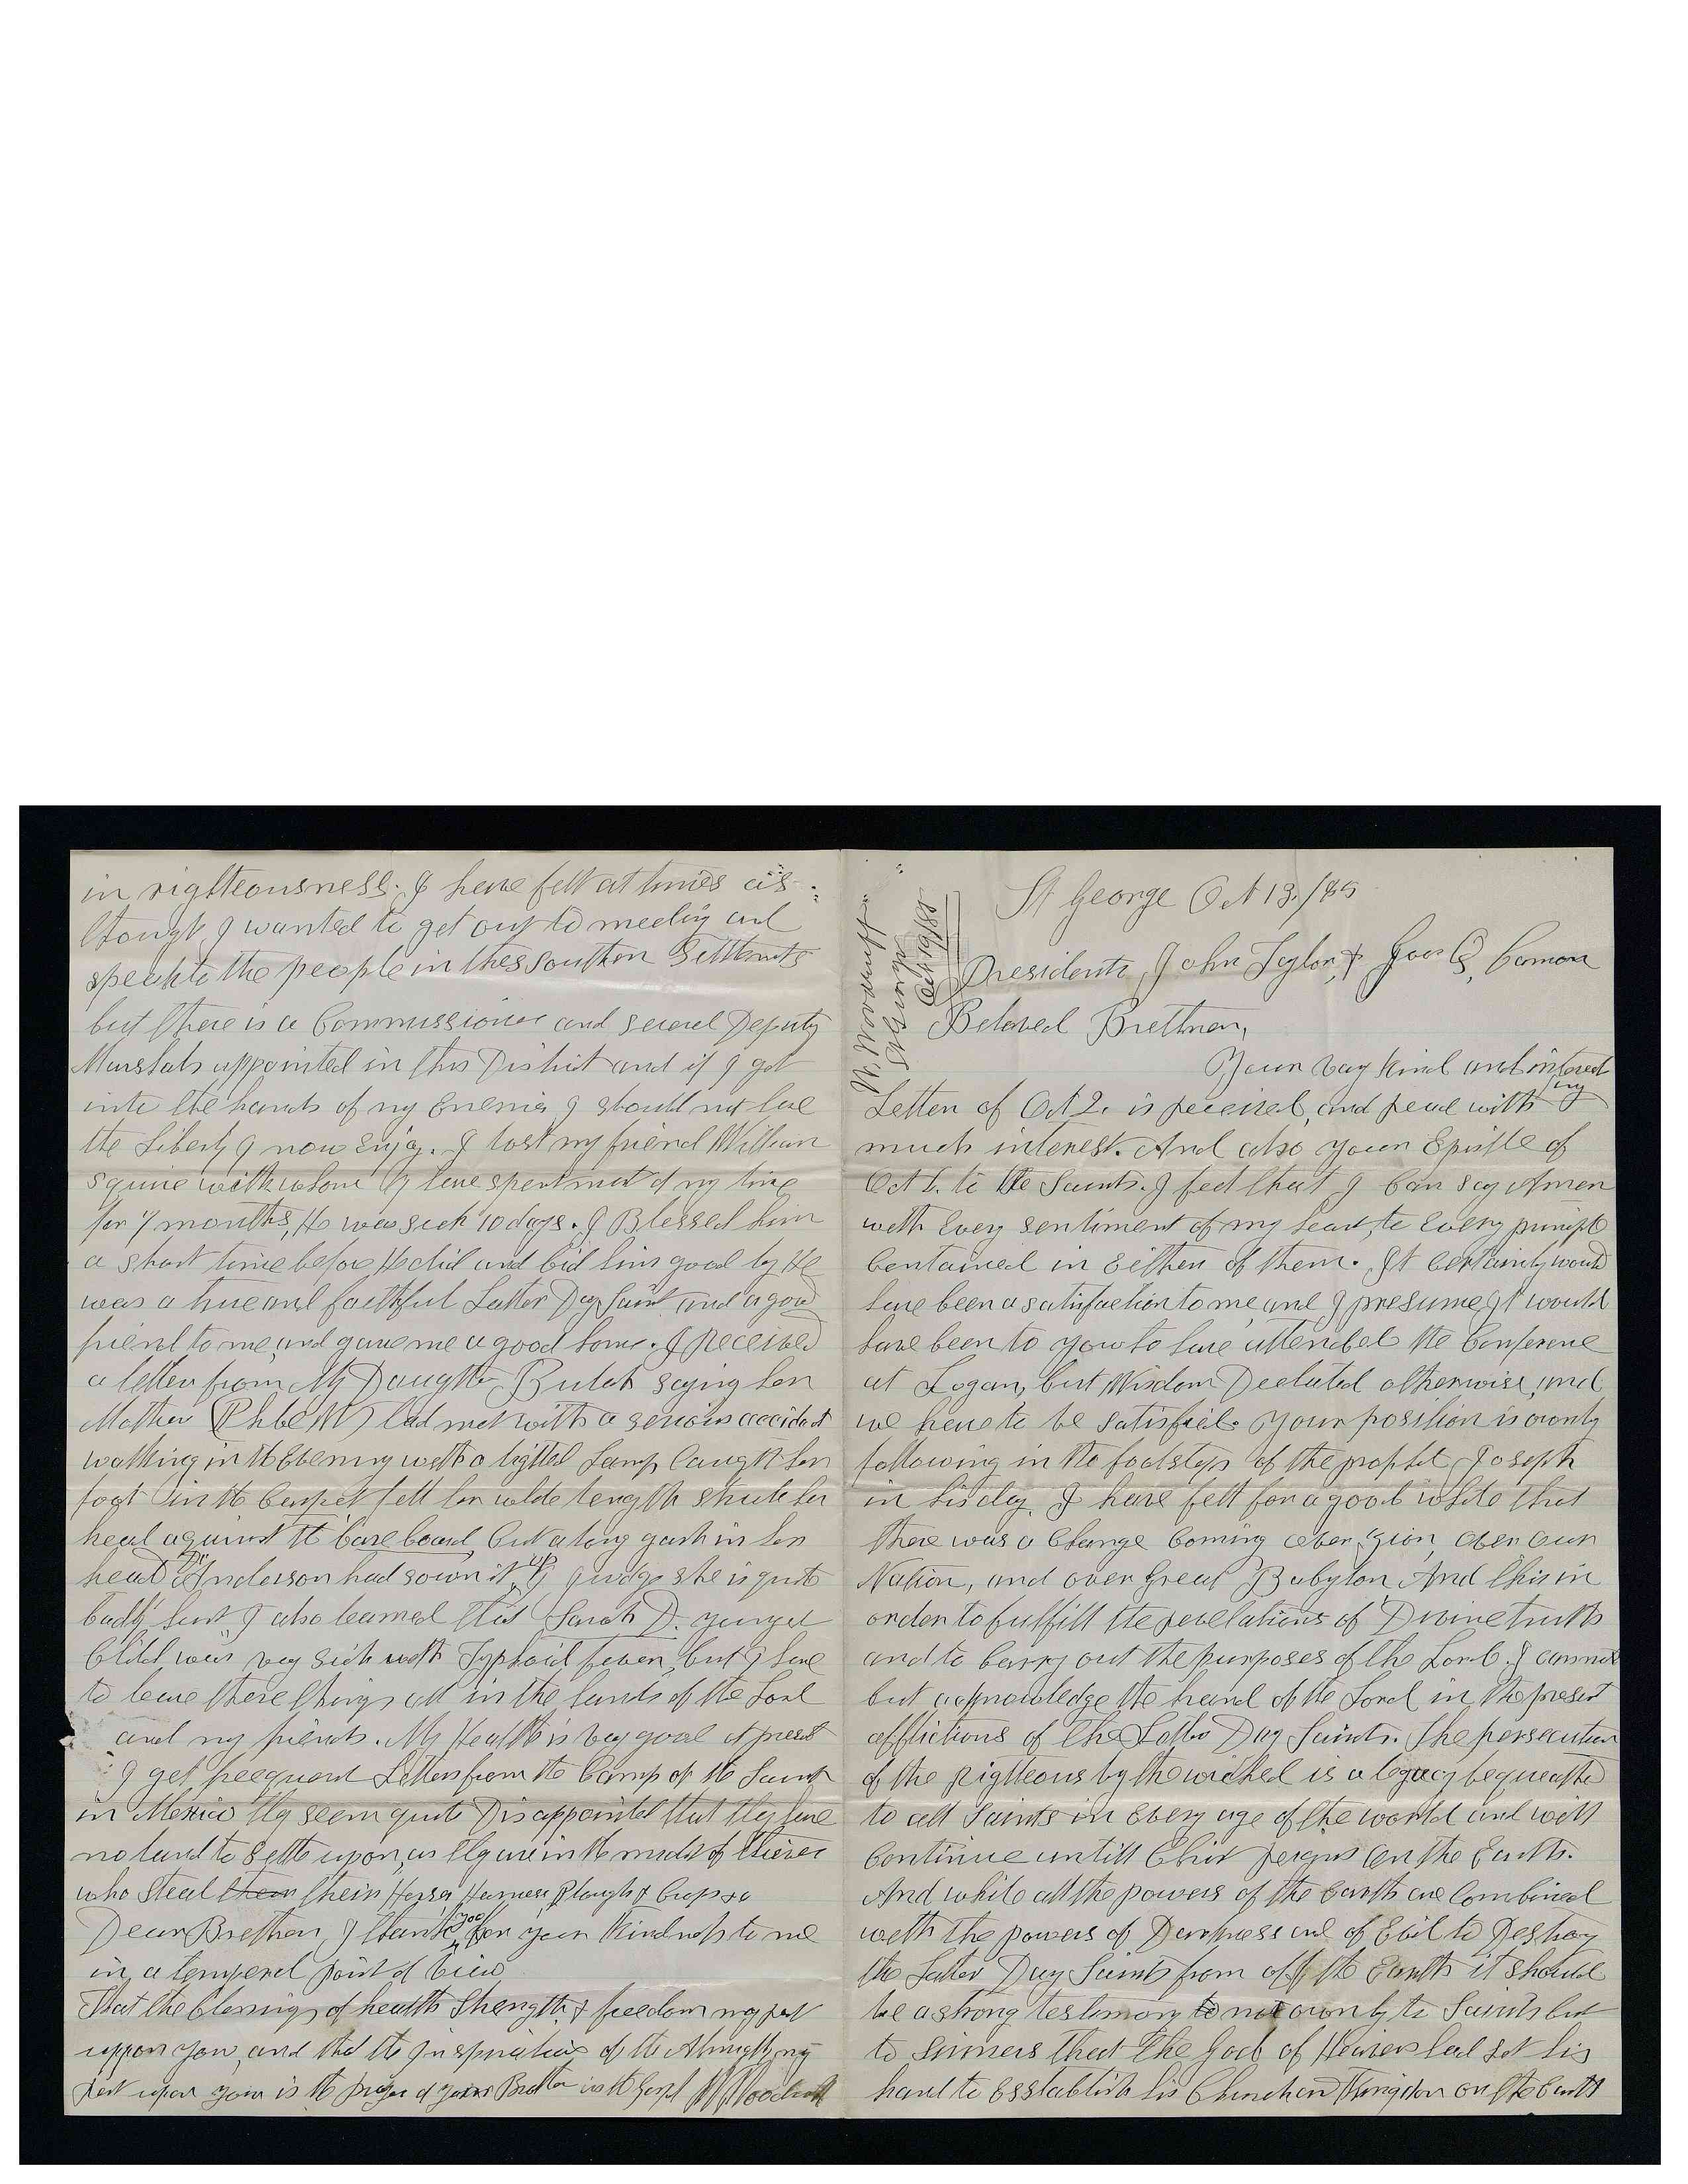 St George Oct 13./85
Presidents John Taylor, & Geo Q, Cannon
Beloved Brethren,
Your vary kind and interest
ing
Letter of Oct 2. is received, and read with
much interest. And also your Epistle of
Oct 1. to the Saints. I feel that I Can say Amen
with Evry sentiment of my heart, to Evry principle
Contained in Either of them. It Certainly would
have been a satisfaction to me, and I presume it would
have been to you to have attended the Conference
at Logan, but Wisdom Dectated otherwise, and
we have to be satisfied. Your position is ownly
following in the footsteps of the prophet Joseph
in his day. I have felt for a good while that
there was a Change Coming over Zion, over our
Nation, and over Great Babylon And this in
order to fulfill the revelations of Divine truth
and to Carry out the purposes of the Lord. I cannot
but acknowledge the hand of the Lord in the present
afflictions of the Latter Day Saints. The persecution
of the Righteous by the wicked is a legacy bequeathed
to all Saints in Evry age of the world and will
Continue untill Christ reigns on the Earth.
And while all the powers of the Earth are Combined
with the powers of Darkness and of Evil to Destroy
the Latter Day Saints from off the Earth it should
be a strong testimony to not ownly to Saints but
to Sinners that the God of Heaven had set his
hand to Esstablish his Church and Kingdom on the Earth
W. Woodruff
St George
Oct 13/1885
in righteousness. I have felt at times as
though I wanted to get out to meeting and
speak to the people in thes southern Settlements
but there is a Commissioner and several Deputy
Marshals appointed in this District and if I got
into the hands of my Enemies I should not have
the Liberty I now Enjoy. I lost my friend William
Squire with whom I have spent most of my time
for 7 months, He was sick 10 days. I Blessed him
a short time before He died and bid him good by He
was a true and faithful Latter Day Saint and a good
friend to me, and gave me a good home. I Received
a letter from My Daughter Bulah saying her
Mother (Phbe W) had met with a serious accidet
walking in the Evening with a lighted Lamp Caught her
foot in the Carpet fell her whole length struck her
head against the base board Cut a long gash in her
head Dr Anderson had sown it up I judge she is quite
badly hurt I also learned that Sarah D. yungest
Child was very sick with Typhoid fever, but I have
to leave these things all in the hands of the Lord
and my friends. My Health is vay good at preset
I get freequent Letters from the Camp of the Saints
in Mexico they seem quite Disappointed that they have
no land to settle upon, as they are in the midst of thieves
who steal them their Horses Harness Ploughs & Crops &c
Dear Brethren, I thank you for your Kindness to me
in a temporal point of View
That the blessings of health strength & freedom may rest
uppon you, and that the Inspiration of the Almighty may
rest upon you is the prayer of yours Brother in the Gospel W. Woodruff